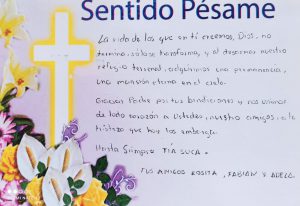 Sentido Pésame
La vida de los que en tí creemos, Dios, no
termina, sólo se transforma, y al dejarnos nuestro
refugio terrenal, adquirimos una permanencia,
una mansión eterna en el cielo.
Gracias Padre por tus bendiciones y nos unimos
de todo corazón a Ustedes, nuestros amigos, a la
tristeza que hoy los embarga.
Hasta Siempre TÍA SUCA.
TUS AMIGOS ROSITA, FABIÁN Y ADELA.